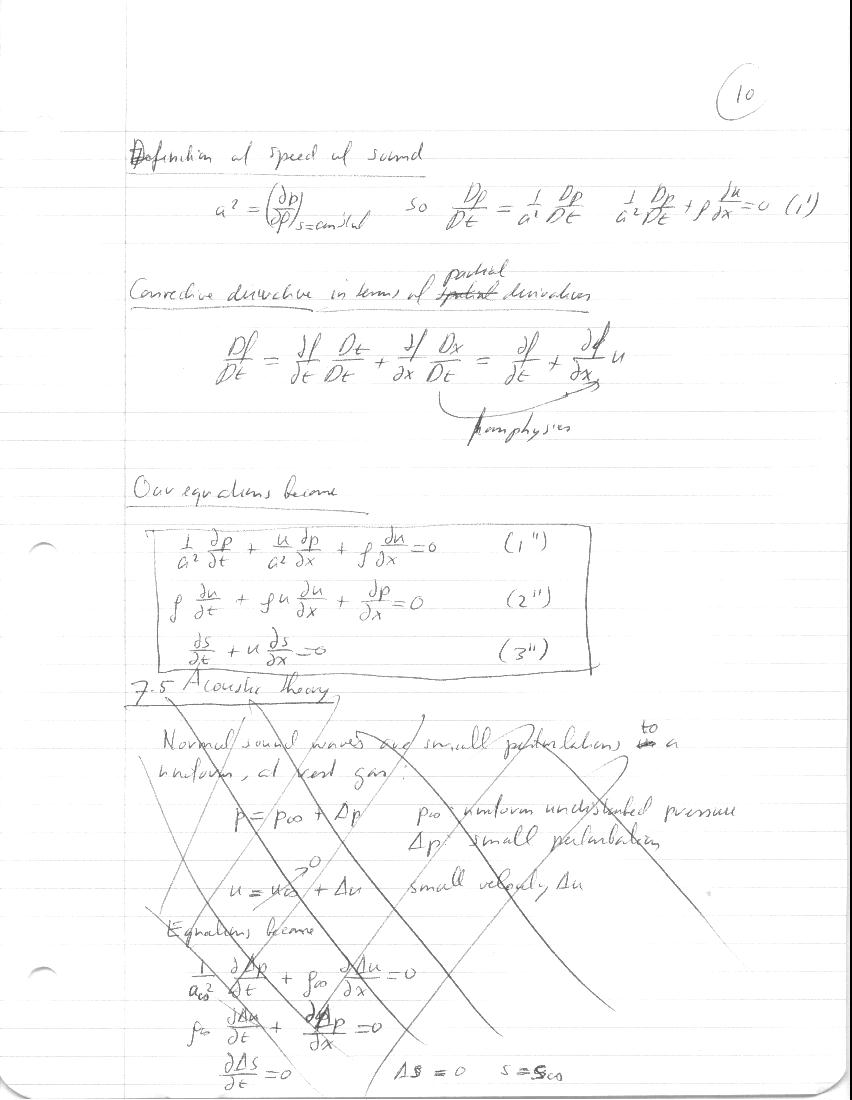 10
Definition of speed of sound
a² = (∂p/∂ρ)s=constant so Dρ/Dt = 1/a² Dp/Dt 1/a² Dp/Dt + ρ ∂u/∂x = 0 (1')
partial
Convective derivative in terms of spatial derivatives
Df/Dt = ∂f/∂t Dt/Dt + ∂f/∂x Dx/Dt = ∂f/∂t + ∂f/∂x u
from physics
Our equations become
1/a² ∂p/∂t + u/a² ∂p/∂x + ρ ∂u/∂x = 0 (1")
ρ ∂u/∂t + ρu ∂u/∂x + ∂p/∂x = 0 (2")
∂s/∂t + u ∂s/∂x = 0 (3")
7.5 Acoustic Theory
Normal sound waves are small perturbations to a
uniform, at rest gas:
p = p∞ + Δp p∞: uniform undisturbed pressure
Δp: small perturbation
u = u∞ + Δu small velocity Δu
0
Equations become
1/a∞² ∂Δp/∂t + ρ∞ ∂Δu/∂x = 0
ρ∞ ∂Δu/∂t + ∂Δp/∂x = 0
∂Δs/∂t = 0 Δs = 0 s = s∞